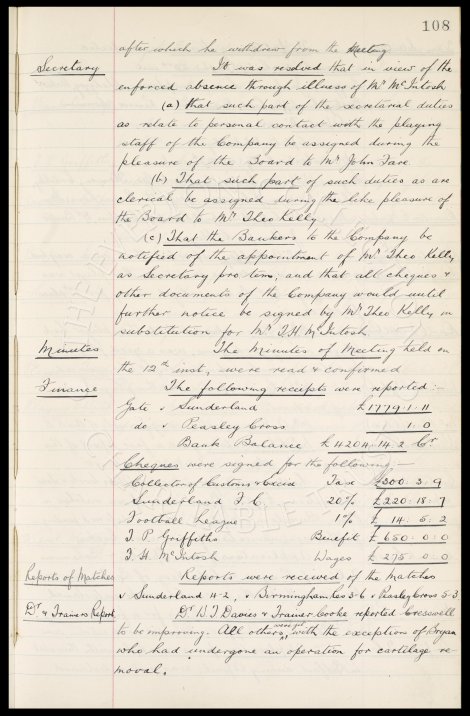 108
after which he withdrew from the Meeting
Secretary It was resolved that in view of the
enforced absence through illness of Mr McIntosh
(a) that such part of the secretarial duties
as relate to personal contact with the playing
staff of the Company be assigned during the
pleasure of the Board to Mr John Fare.
(b) That such part of such duties as are
clerical be assigned during the like pleasure of
the Board to Mr Theo Kelly.
(c) That the Bankers to the Company be
notified of the appointment of Mr Theo Kelly
as Secretary pro tem, and that all cheques &
other documents of the Company would until
further notice be signed by Mr Theo Kelly in
substitution for Mr T.H. McIntosh.
Minutes The Minutes of Meeting held on
the 12th inst, were read & confirmed
Finance The following receipts were reported:-
Gate v Sunderland £1779.1.11
do v Peasley Cross 1.0
Bank Balance £4204.14.2 Cr
Cheques were signed for the following:-
Collector of Customs & Excise Tax £300.3.9
Sunderland F.C. 20% £220.18.7
Football League 1% £14.5.2
T. P. Griffiths Benefit £650.0.0
T. H. McIntosh Wages £275.0.0
Reports of Matches Reports were received of the matches
v Sunderland 4-2, v Birmingham Res 3-6 v Peasley Cross 5-3
Dr & Trainers Report Dr W.T. Davies & Trainer Cooke reported Cresswell
to be improving. All others were fit, with the exception of Bryan
who had undergone an operation for cartilage re-
moval.